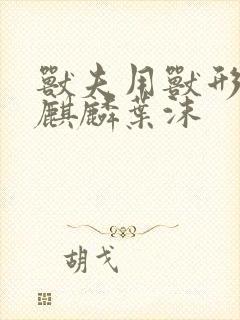 獸夫用獸形
麒麟葉沫
胡戈